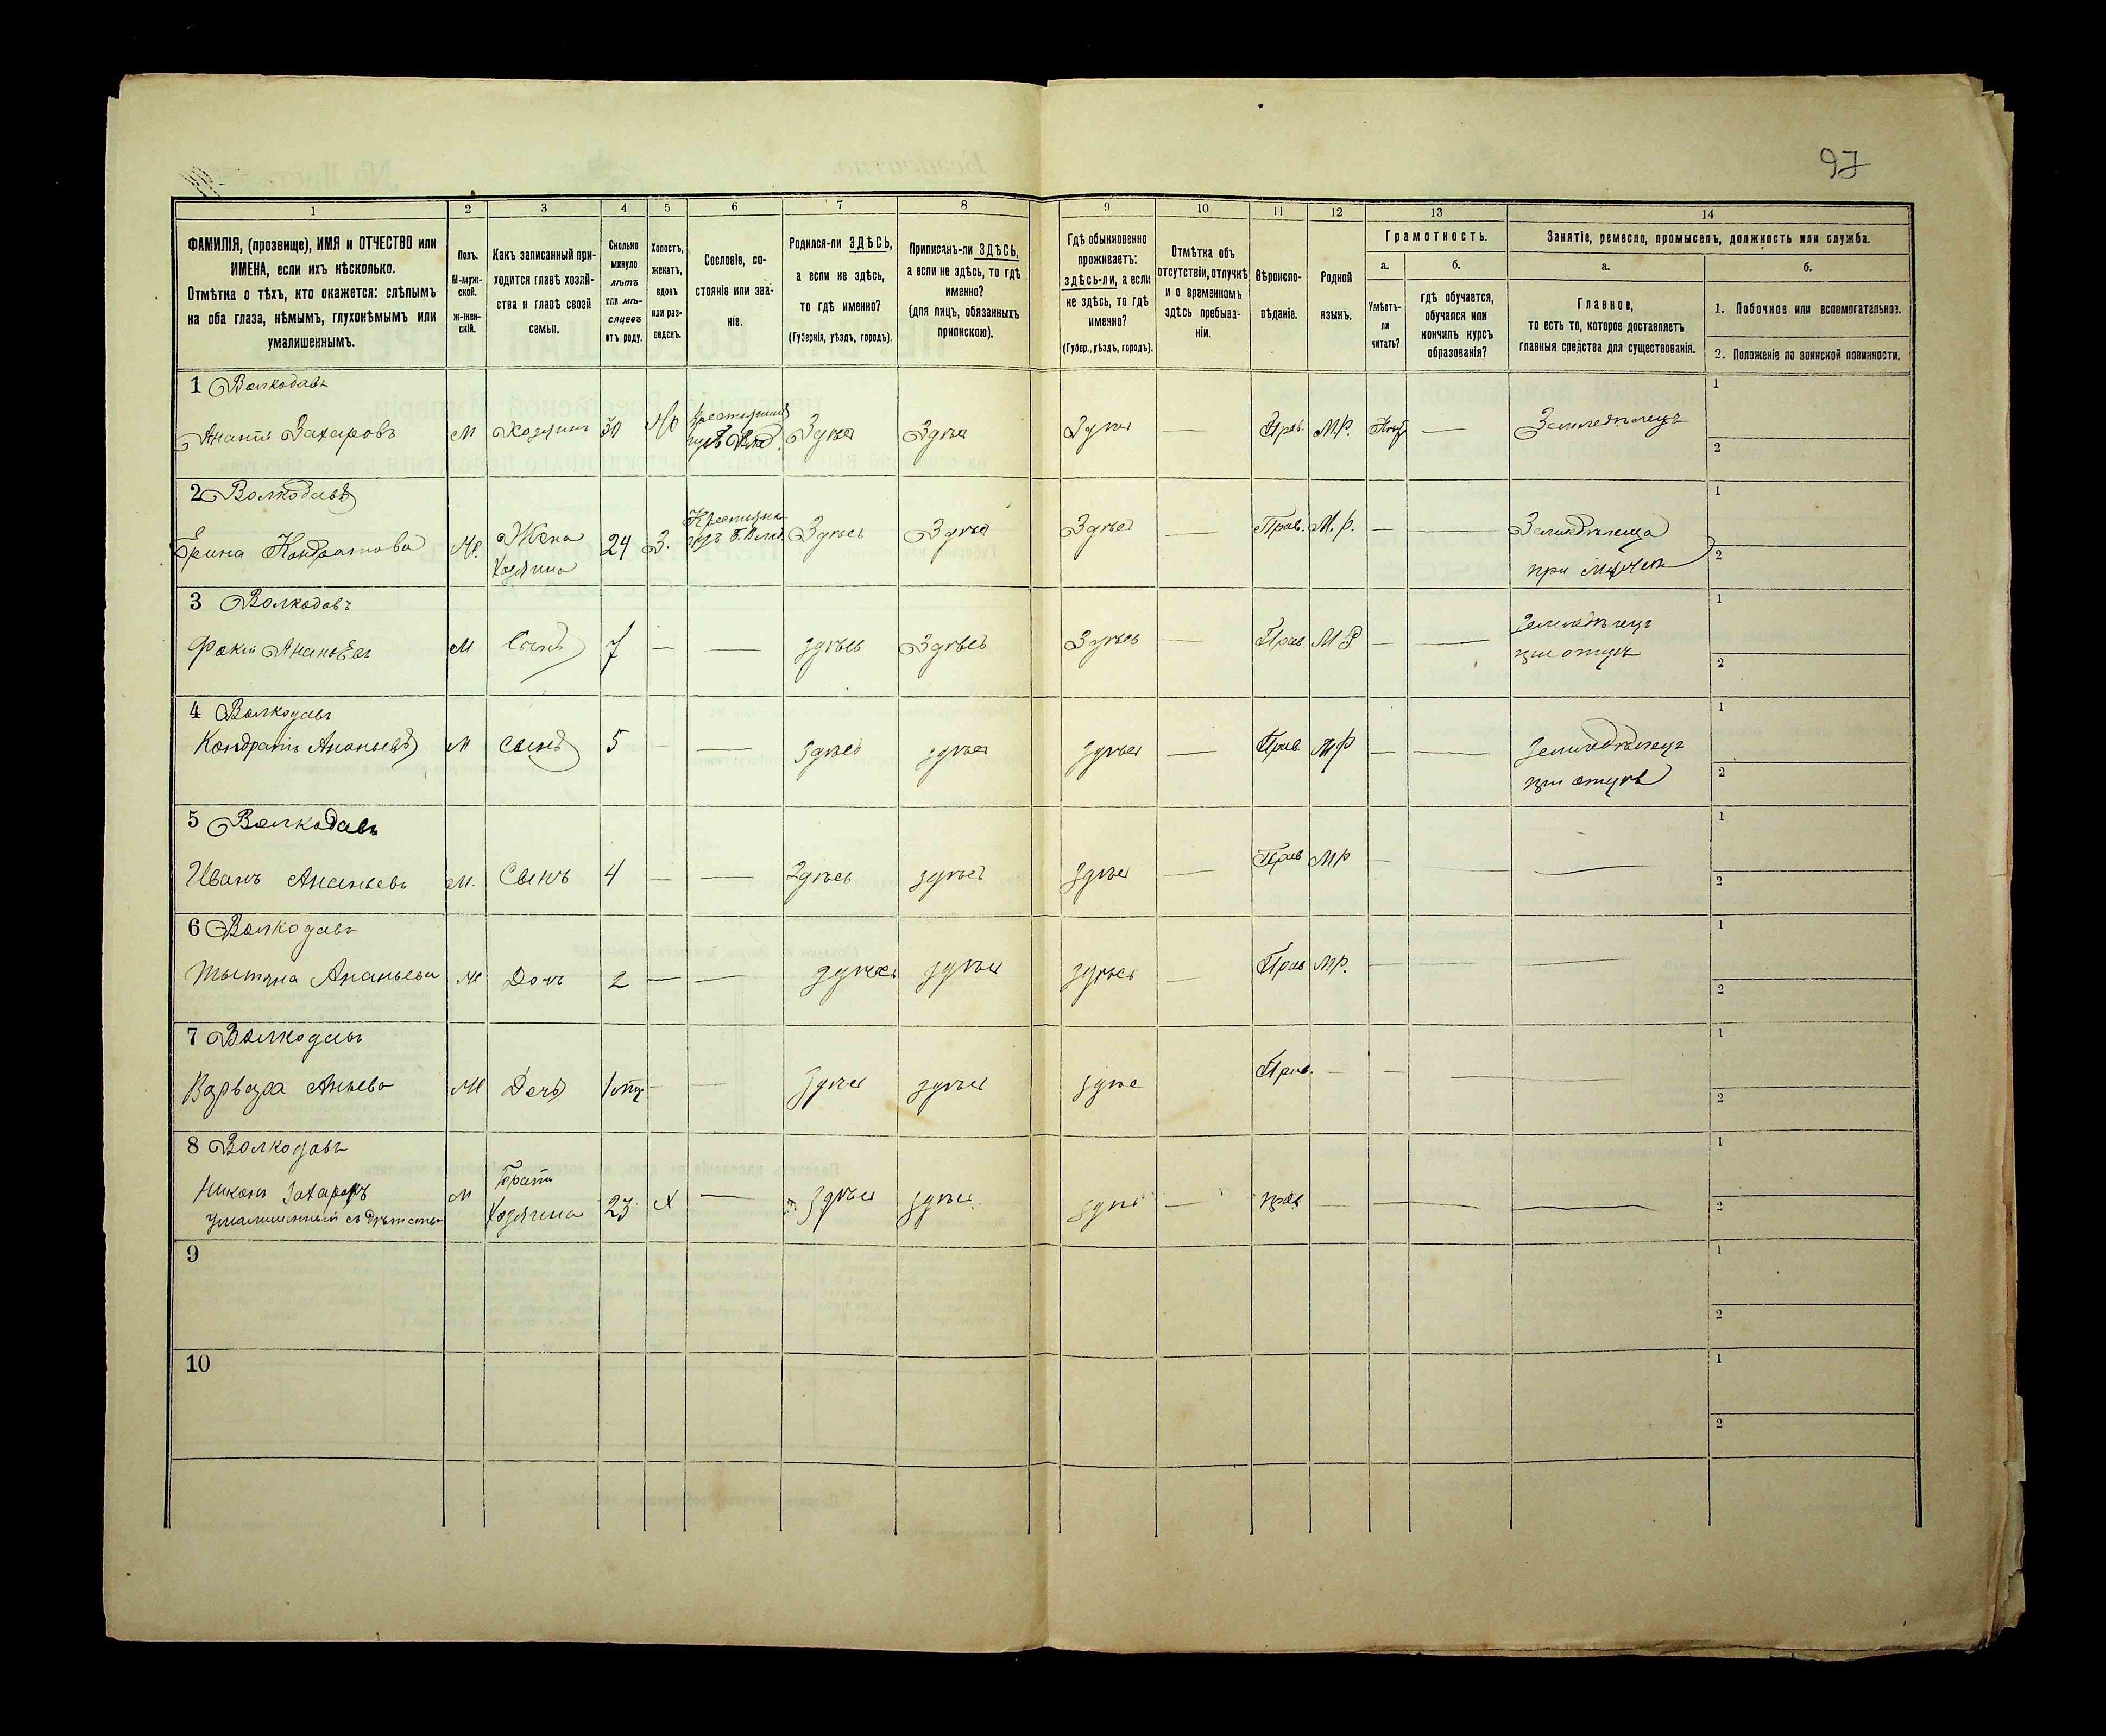 97
1 2 3 4 5 6 7 8 9 10 11 12 13 14
ФАМИЛІЯ, (прозвище), ИМЯ и ОТЧЕСТВО или
ИМЕНА, если ихъ нѣсколько.
Отмѣтка о тѣхъ, кто окажется: слѣпымъ
на оба глаза, нѣмымъ, глухонѣмымъ или
умалишеннымъ.
Полъ.
М-муж-
ской.
Ж-жен-
скій.
Какъ записанный при-
ходится главѣ хозяй-
ства и главѣ своей
семьи.
Сколько
минуло
лѣтъ
или мѣ-
сяцевъ
отъ роду.
Холостъ,
женатъ,
вдовъ
или раз-
веденъ.
Сословіе, со-
стояніе или зва-
ніе.
Родился-ли ЗДѢСЬ,
а если не здѣсь,
то гдѣ именно?
(Губернія, уѣздъ, городъ).
Приписанъ-ли ЗДѢСЬ,
а если не здѣсь, то гдѣ
именно?
(для лицъ, обязанныхъ
припискою).
Гдѣ обыкновенно
проживаетъ:
здѣсь-ли, а если
не здѣсь, то гдѣ
именно?
(Губер., уѣздъ, городъ).
Отмѣтка объ
отсутствіи, отлучкѣ
и о временномъ
здѣсь пребыва-
ніи.
Вѣроиспо-
вѣданіе.
Родной
языкъ.
Грамотность.
а.
Умѣетъ-
ли
читать?
б.
гдѣ обучается,
обучался или
кончилъ курсъ
образованія?
Занятіе, ремесло, промыселъ, должность или служба.
а.
Главное,
то есть то, которое доставляетъ
главныя средства для существованія.
б.
1. Побочное или вспомогательное.
2. Положеніе по воинской повинности.
1 Волкодавъ
Ананій Захаровъ М Хозяинъ 30 Здѣсь Здѣсь Здѣсь Прав. МР. — Земледѣлецъ
1
2
2 Волкодавъ
Ерина Кондратова Ж. Жена
Хозяина 24 З. Крестьянка
Здѣсь Здѣсь Здѣсь — Прав. М. р. — — Земледѣлеца
при мужѣ
1
2
3 Волкодавъ
Фокій Ананьевъ М Сынъ 7 — — здѣсь Здѣсь Здѣсь — Прав МР — — Земледѣлецъ
при отцѣ
1
2
4 Волкодавъ
Кондратій Ананьевъ М сынъ 5 — — здѣсь здѣсь здѣсь — Прав МР — — Земледѣлецъ
при отцѣ
1
2
5 Волкодавъ
Иванъ Ананьевъ М. Сынъ 4 — — Здѣсь здѣсь здѣсь — Прав МР — — —
1
2
6 Волкодавъ
Татяна Ананьева Ж Дочъ 2 — — здѣсь здѣсь здѣсь — Прав МР. — — —
1
2
7 Волкодавъ
Ж Дочъ — — здѣсь здѣсь здѣсь Прав. — — — —
1
2
8 Волкодавъ
Никонъ Захаровъ
умалишенный съ дѣтства М Братъ
Хозяина 23 Х — здѣсь здѣсь здѣсь — прав — — — —
1
2
9
1
2
10
1
2